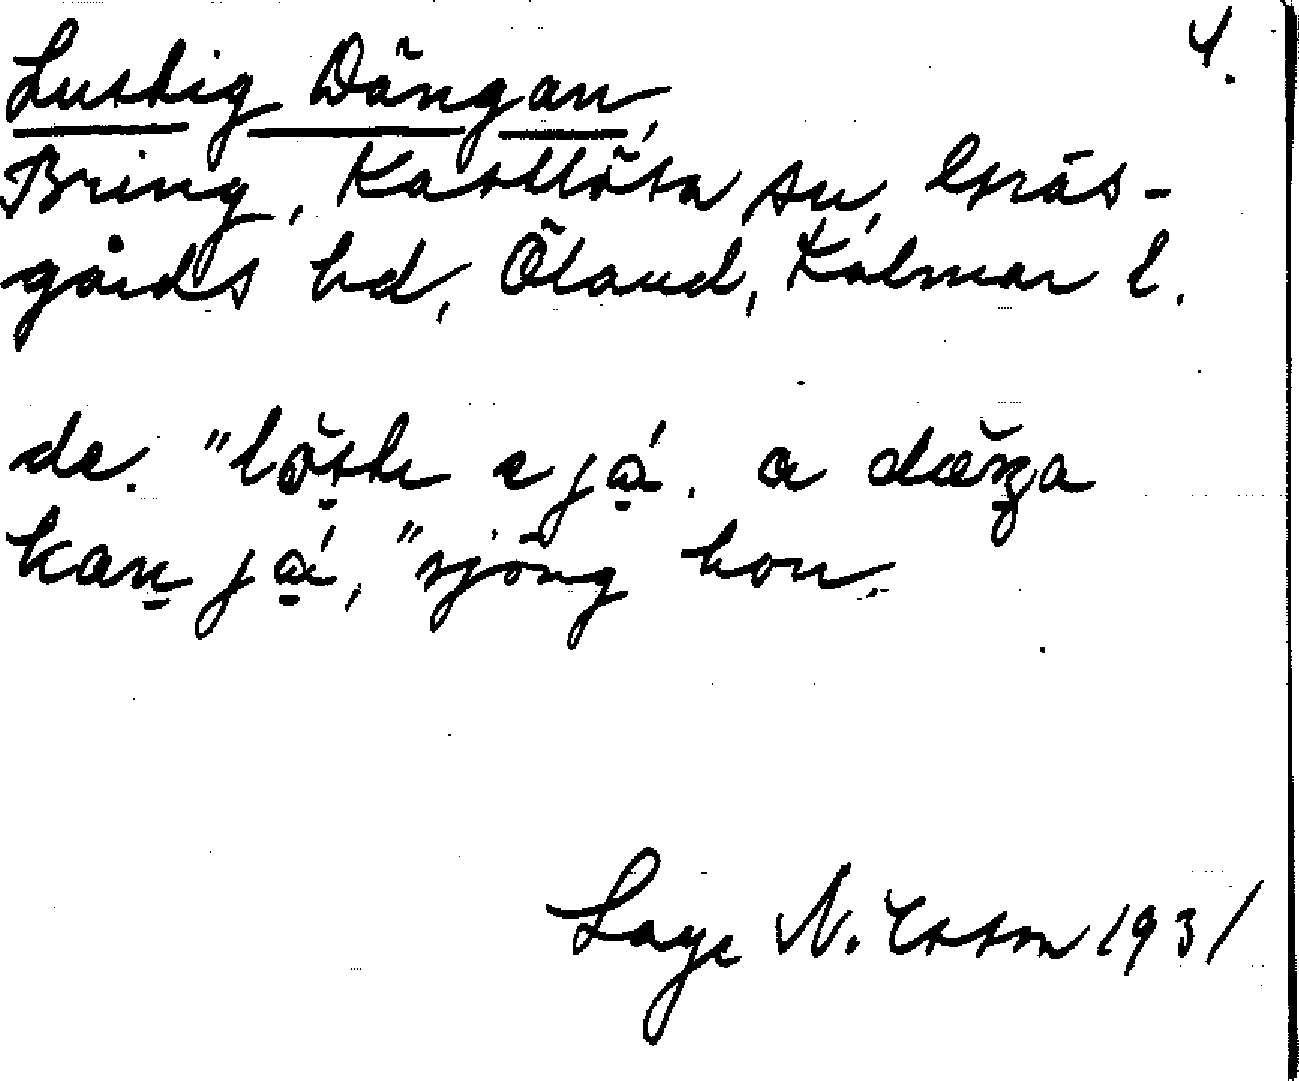 4.
Lustig Dängan,
Bring, Kastlösa sn, Gräs-
gårds hd, Öland, Kalmar l.
de. "löste e já. a däŋa
kan já," sjöng hon.
Lage N. Ersson 1931